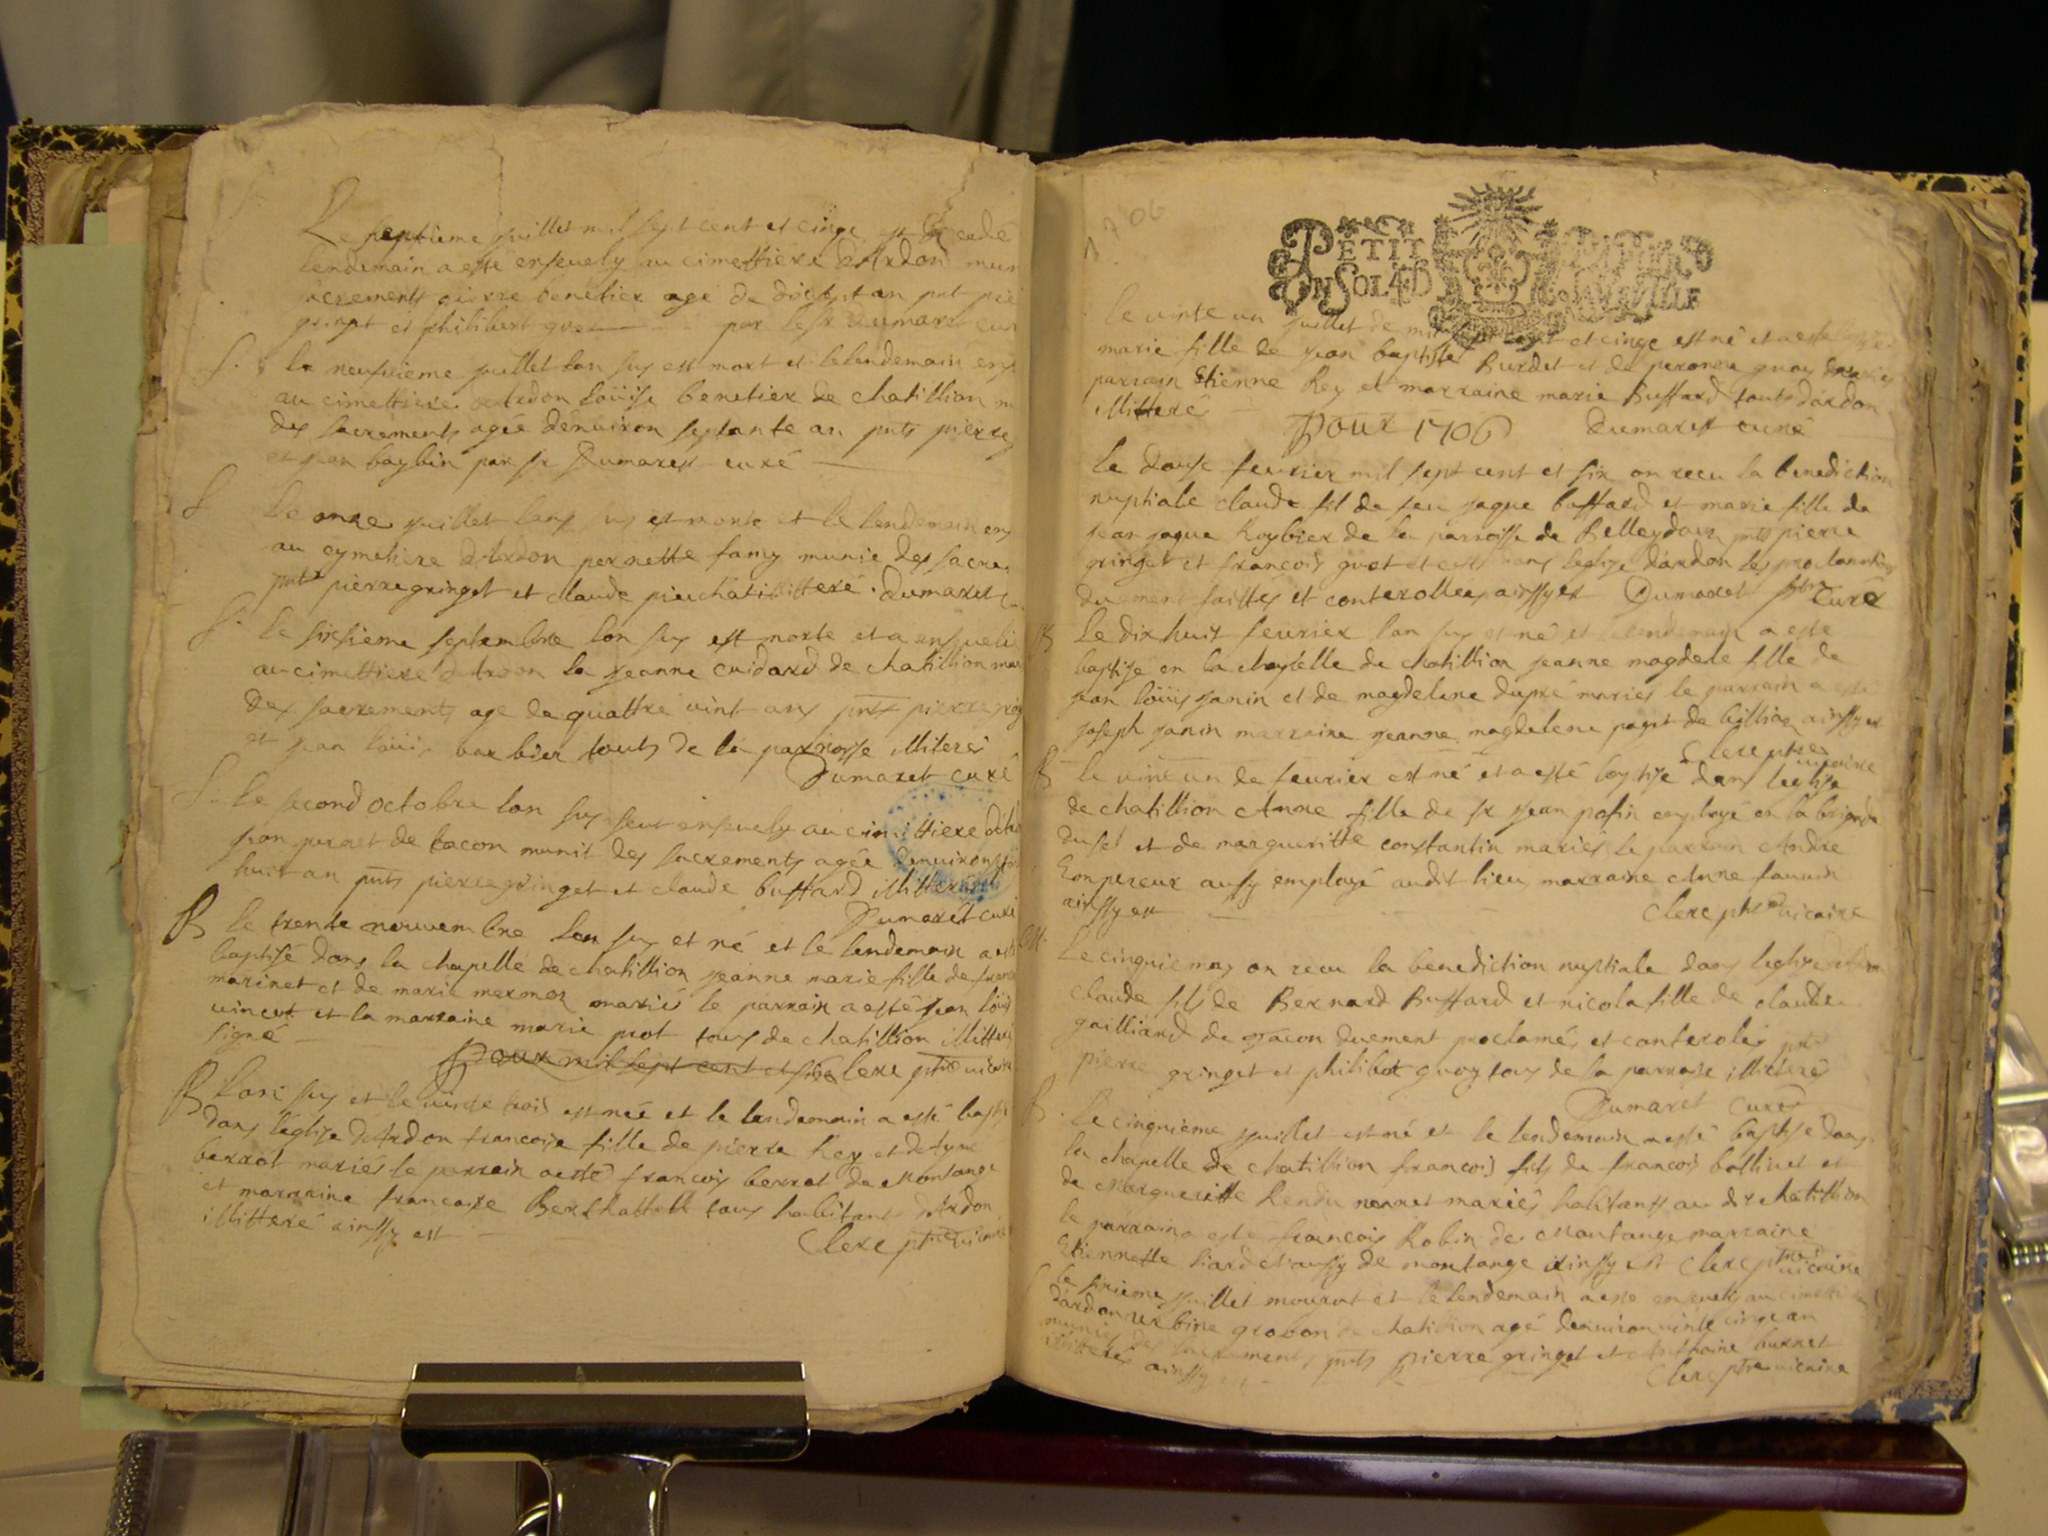 Le septieme juillet mil sept cent et cinqe est decedé
lendemain a esté ensevely au cimettiere d'Ardon muni
sacrements pierre benetier agé de an pnt pie
gringet et philibert par le sr Dumaret cur
S. le neufvieme juillet lan sus est mort et le lendemain ens
au cimettiere d'Ardon Loüise benetier de chatillion m
des sacrements agée dénuiron septante an pnts pierre
et jean baybin par sr Dumarest curé
S Le onze juillet lan sus est morte et le lendemain ens
au cymetiere d'Ardon pernette famy munie des sacre
pnts pierre gringet et claude illitteré. Dumaret
S. le sixsieme septembre lan sus est morte et a ensueli
au cimettiere d'Ardon la jeanne cuidard de chatillion mun
des sacrements age de quattre vint ans pnts pierre
et jean Loüis barbier touts de la parroisse illiteres
Dumaret curé
S. Le second octobre lan sus feut ensuely au cimittiere d'A
jean perret de tacon munit des sacrements agée denuiron
huit an pnts pierre gringet et claude buffard illitterés
Dumarét curé
B le trente nouvembre lan sus et né et le lendemain a esté
baptisé dans la chapelle de chatillion jeanne marie fille de
marinet et de marie mermez mariés le parrain a esté jean Loüis
uincet et la marraine marie prot tous de chatillion illitter
signé
Pour mil sept cent et six Clerc ptre uicaire
B Lan sus et le uinte trois est née et le lendemain a esté bapt
dans léglise d'Ardon francoise fille de pierre Rey et de
berrot mariés le parrain a esté francois berrot de Montange
et marraine francoise tous habitant d'Ardon
illitteré ainssy est
Clerc ptre uicaire
1706
PETIT PAPIER
EN SOL 4 D
le uinte un juillet de mil sept cent et cinqe est né et a esté
marie fille de jean baptiste Burdet et de peronne mariés
parrain Etienne Rey et marraine marie Buffard touts dardon
illitteré
Pour 1706 Dumarest curé
le douse feurier mil sept cent et six on recu la benediction
nuptiale claude fil de feu jaque buffard et marie fille de
jean jaque Roybier de la parroisse de Belleydoux pnts pierre
gringet et francois guot et cella dans leglise dardon les proclamations
duement faittes et conterollees ainssy est Dumaret ptre Curé
B Le dix huit feurier lan sus est né et le lendemain a esté
baptise en la chapelle de chatillion jeanne magdelene fille de
jean Loüis janin et de magdelene dupré mariés le parrain a esté
joseph janin marraine jeanne magdelene paget de billiaz ainssy est
Clerc ptre uicaire
B le uint un de feurier est né et a esté baptise dans leglise
de chatillion Anne fille de sr jean pasin employé en la brigade
du sel et de margueritte constantin mariés le parrain Andre
Lonpereur ausy employé audit lieu marraine Anne
ainssy est Clerc ptre uicaire
M. Le cinquie may on recu la bénediction nuptiale dans leglise
claude fils de Bernard Buffard et nicola fille de claude
gailliard de tacon duement proclamés et conterolés pnts
pierre gringet et philibet guoy tous de la parroise illiterés
Dumaret curé
B. Le cinquiéme juillet est né et le lendemain a esté baptisé dans
la chapelle de chatillion francois fils de francois bollinet et
de Margueritte Rendu mariés habitants au dit chatillion
le parrain a este francois Robin de Montange marraine
Etiennette aussy de montange ainssy est Clerc ptre uicaire
le juillet mourut et le lendemain a esté ensuely au cimettiere
dardon urbine grobon de chatillion agé denuiron uinte cinqe an
munie des sacrements pnts pierre gringet et Anthoine burnet
illitterés ainssy est Clerc ptre uicaire